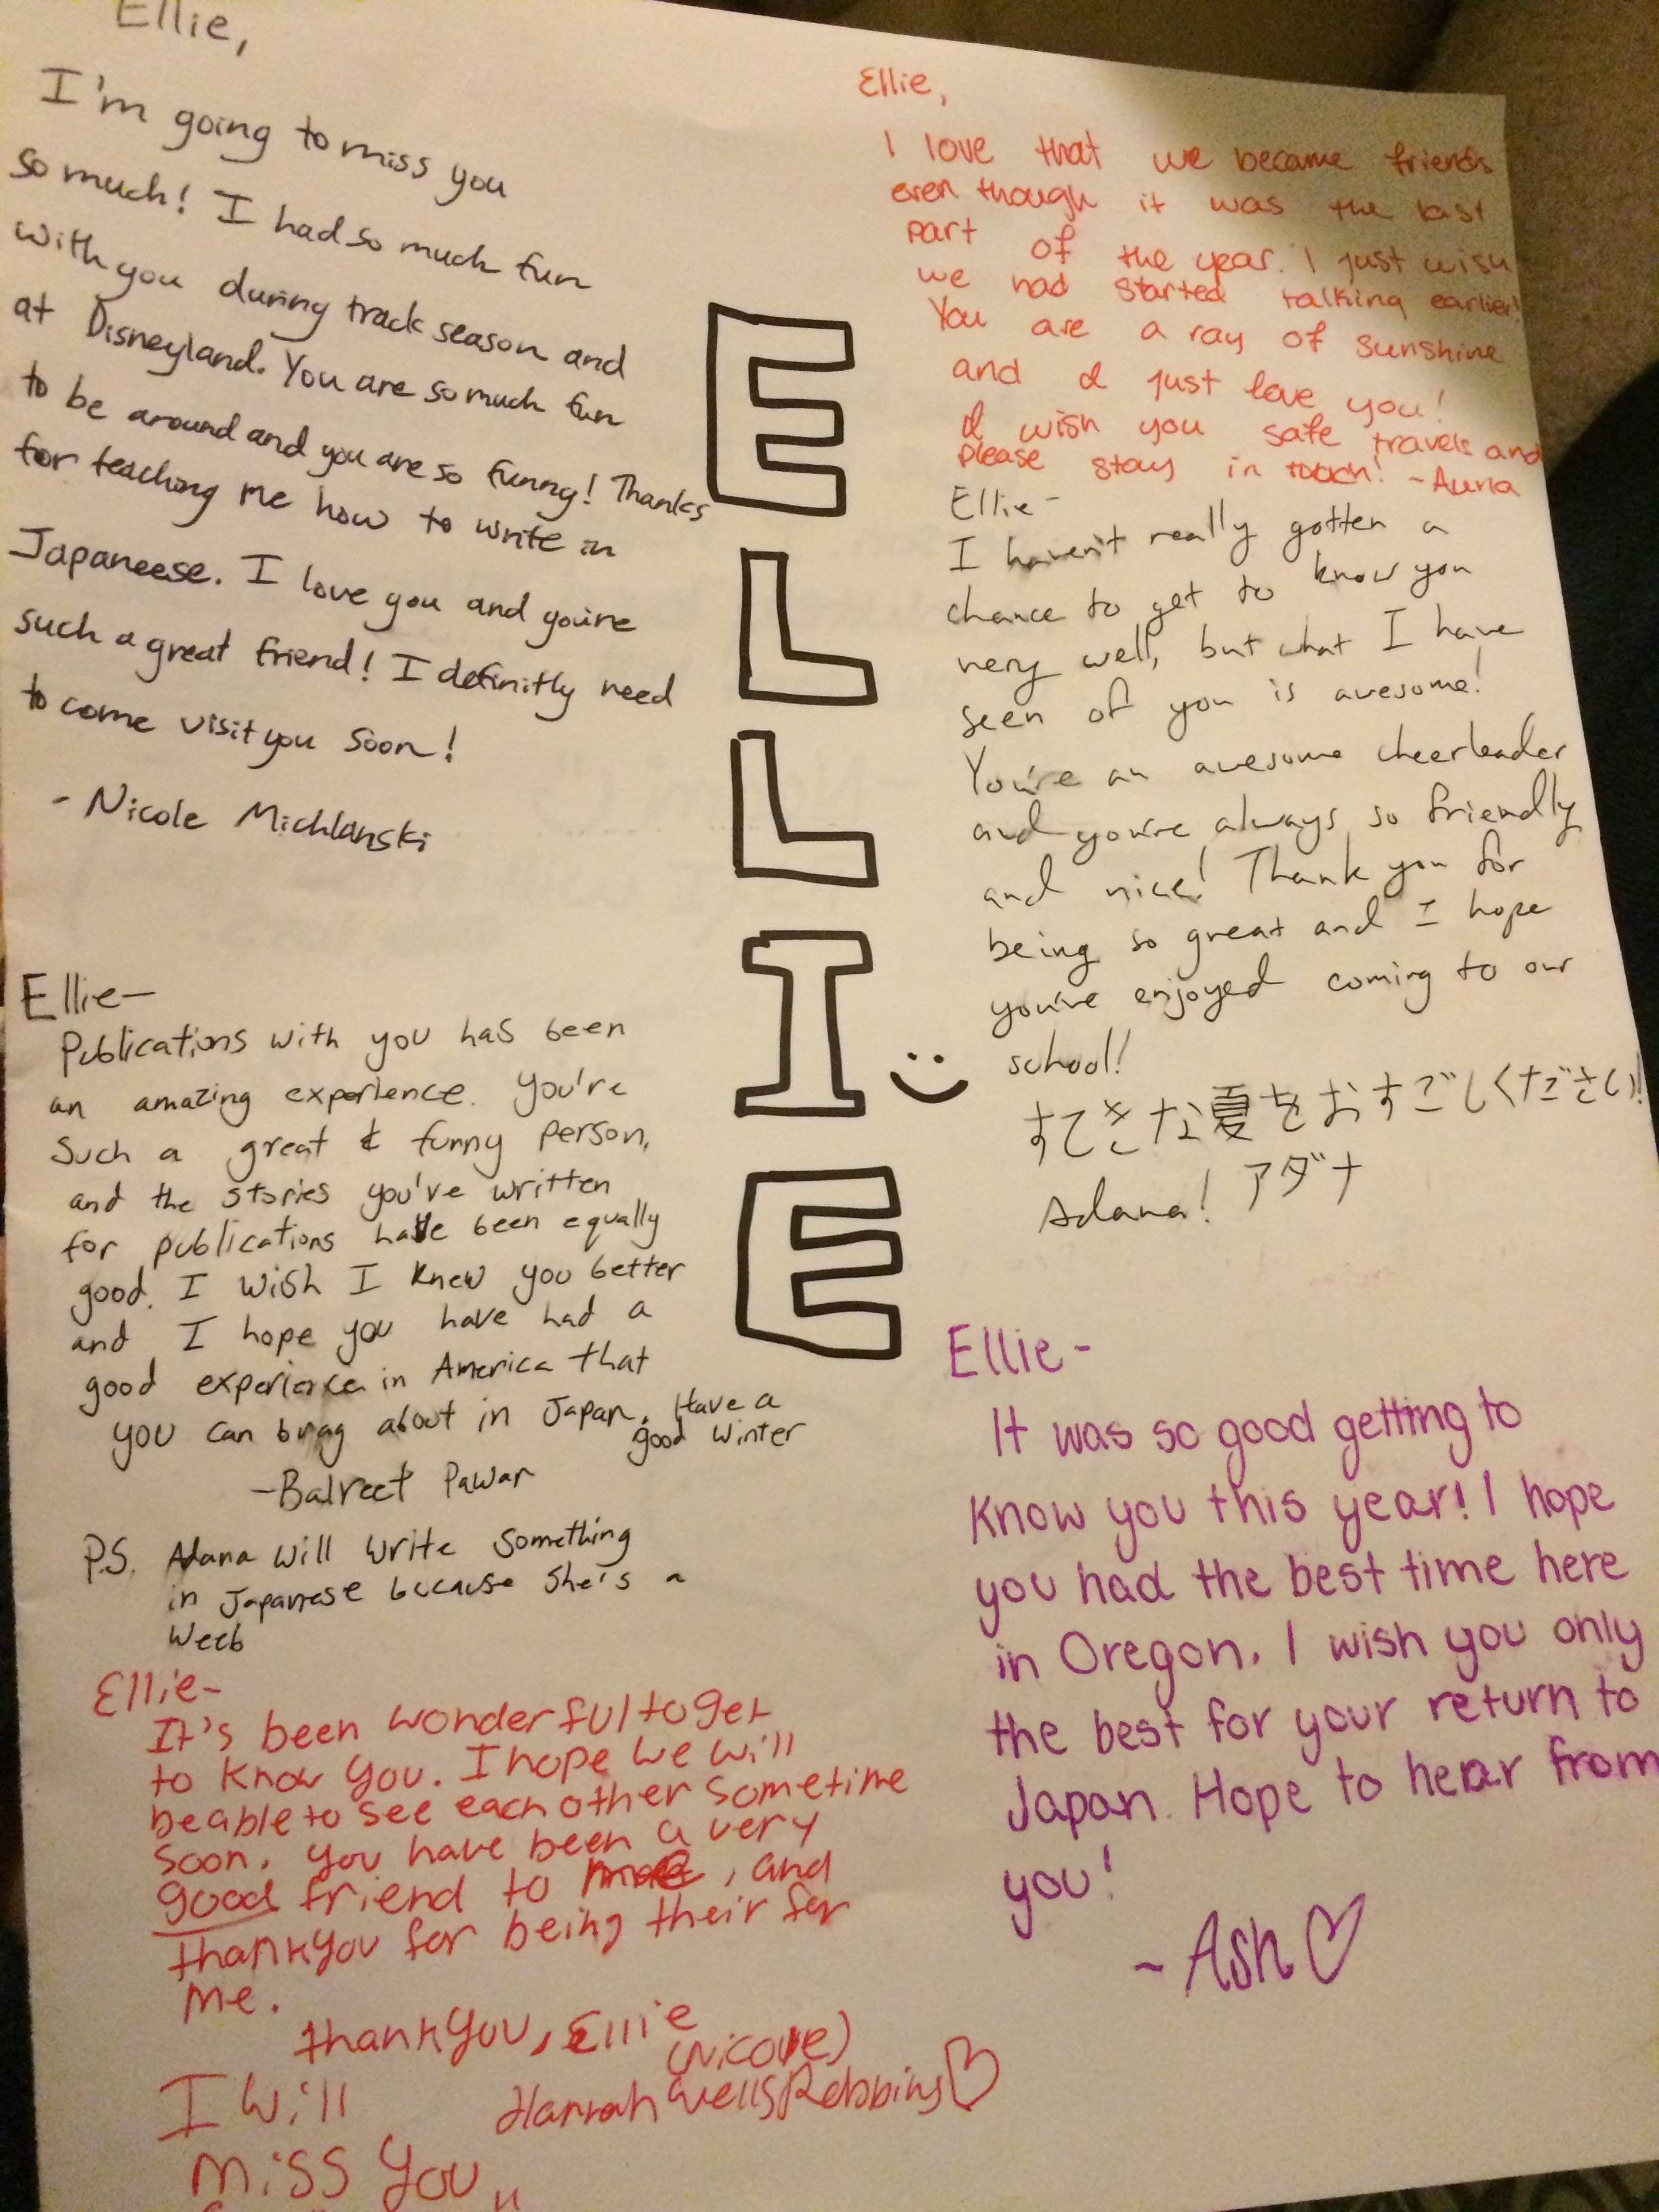 Ellie,
I'm going to miss you
so much! I had so much fun
with you during track season and
at Disneyland. You are so much fun
to be around and you are so funny! Thanks
for teaching me how to write in
Japaneese. I love you and you're
such a great friend! I definitly need
to come visit you soon!
- Nicole Michlanski
Ellie-
Publications with you has been
an amazing experience. You're
such a great & funny person,
and the stories you've written
for publications have been equally
good. I wish I knew you better
and I hope you have had a
good experience in America that
you can brag about in Japan. Have a
good winter
-Balreet Pawar
P.S. Adana will write something
in Japanese because she's a
weeb
Ellie-
It's been wonderful to get
to know you. I hope we will
be able to see each other sometime
soon. you have been a very
good friend to me, and
thankyou for being their for
me.
thankyou, Ellie
(Nicole)
Hannah Wells Robbins
I will
miss you
ELLIE
Ellie,
I love that we became friends
even though it was the last
part of the year. I just wish
we had started talking earlier!
You are a ray of sunshine
and I just love you!
I wish you safe travels and
please stay in touch! -
Ellie-
I haven't really gotten a
chance to get to know you
very well, but what I have
seen of you is awesome!
You're an awesome cheerleader
and you're always so friendly
and nice! Thank you for
being so great and I hope
you've enjoyed coming to our
school!
すてきな夏をおすごしください!
Adana! アダナ
Ellie-
It was so good getting to
know you this year! I hope
you had the best time here
in Oregon. I wish you only
the best for your return to
Japan. Hope to hear from
you!
~Ash